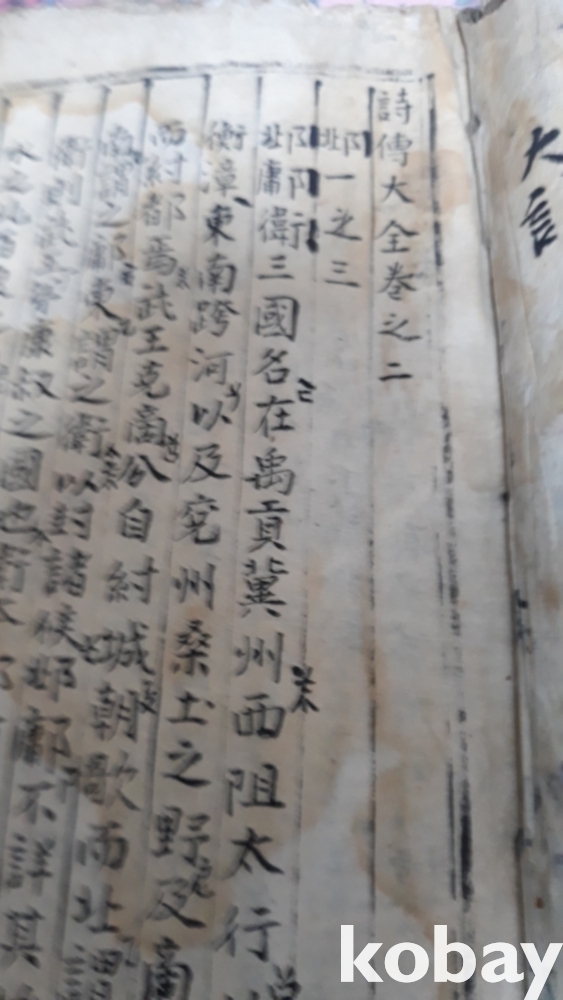 大言
詩傳大全卷之二
邶一之三
邶鄘衛三國名在禹貢冀州西阻太行
衡漳東南跨河以及兗州桑土之野及商
而紂都焉武王克商分自紂城朝歌而北謂
南謂之鄘東謂之衛以封諸侯邶鄘不詳其
衛則武王弟康叔之國也衛本
kobay